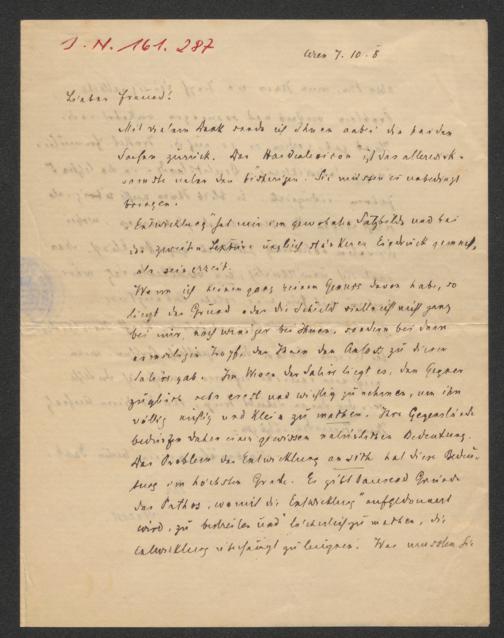 J. N. 161.287
Wien 7. 10. 8
Lieber Freund!
Mit vielem Dank sende ich Ihnen anbei die beiden
Sachen zurück. Das ist das aller
unter den bisherigen. Sie müssen es unbedingt
bringen.
"Entwicklung" hat mir ein und bei
der zweiten Lektüre Eindruck gemacht,
als seinerzeit.
Wenn ich keinen ganz reinen Genuss davon habe, so
liegt der Grund oder die Schuld vielleicht nicht ganz
bei mir, noch weniger bei Ihnen, sondern bei dem
Tropf, der Ihnen den Anlass zu dieser
Satire gab. Im Wesen der Satire liegt es, den Gegner
zugleich sehr ernst und wichtig zu nehmen, um ihn
völlig und klein zu machen. Ihre Gegenstände
bedürfen daher einer gewissen Bedeutung.
Das Problem der Entwicklung an sich hat diese Bedeu-
tung im höchsten Grade. Es gibt tausend Gründe
das Pathos, womit die "Entwicklung" aufgedonnert
wird, zu bestreiten und lächerlich zu machen, die
Entwicklung überhaupt zu leugnen. Was mussten Sie